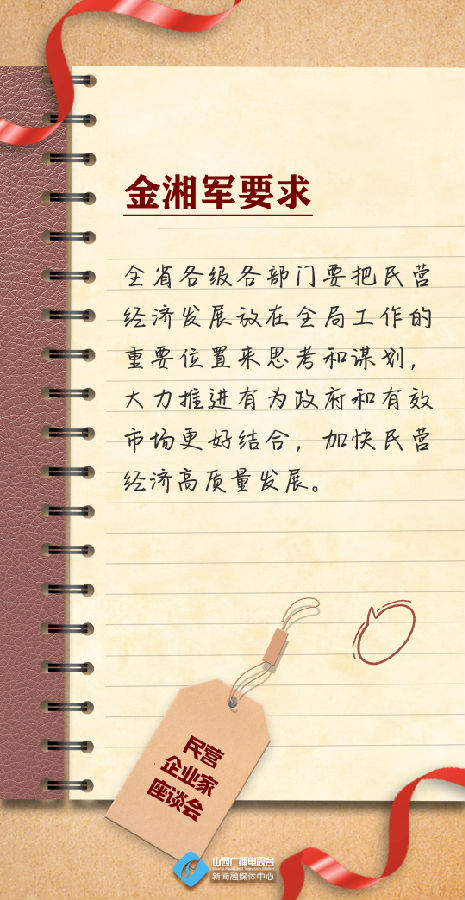 金湘军要求
全省各级各部门要把民营
经济发展放在全局工作的
重要位置来思考和谋划，
大力推进有为政府和有效
市场更好结合，加快民营
经济高质量发展。
民营
企业家
座谈会
山西广播电视台
新闻融媒体中心